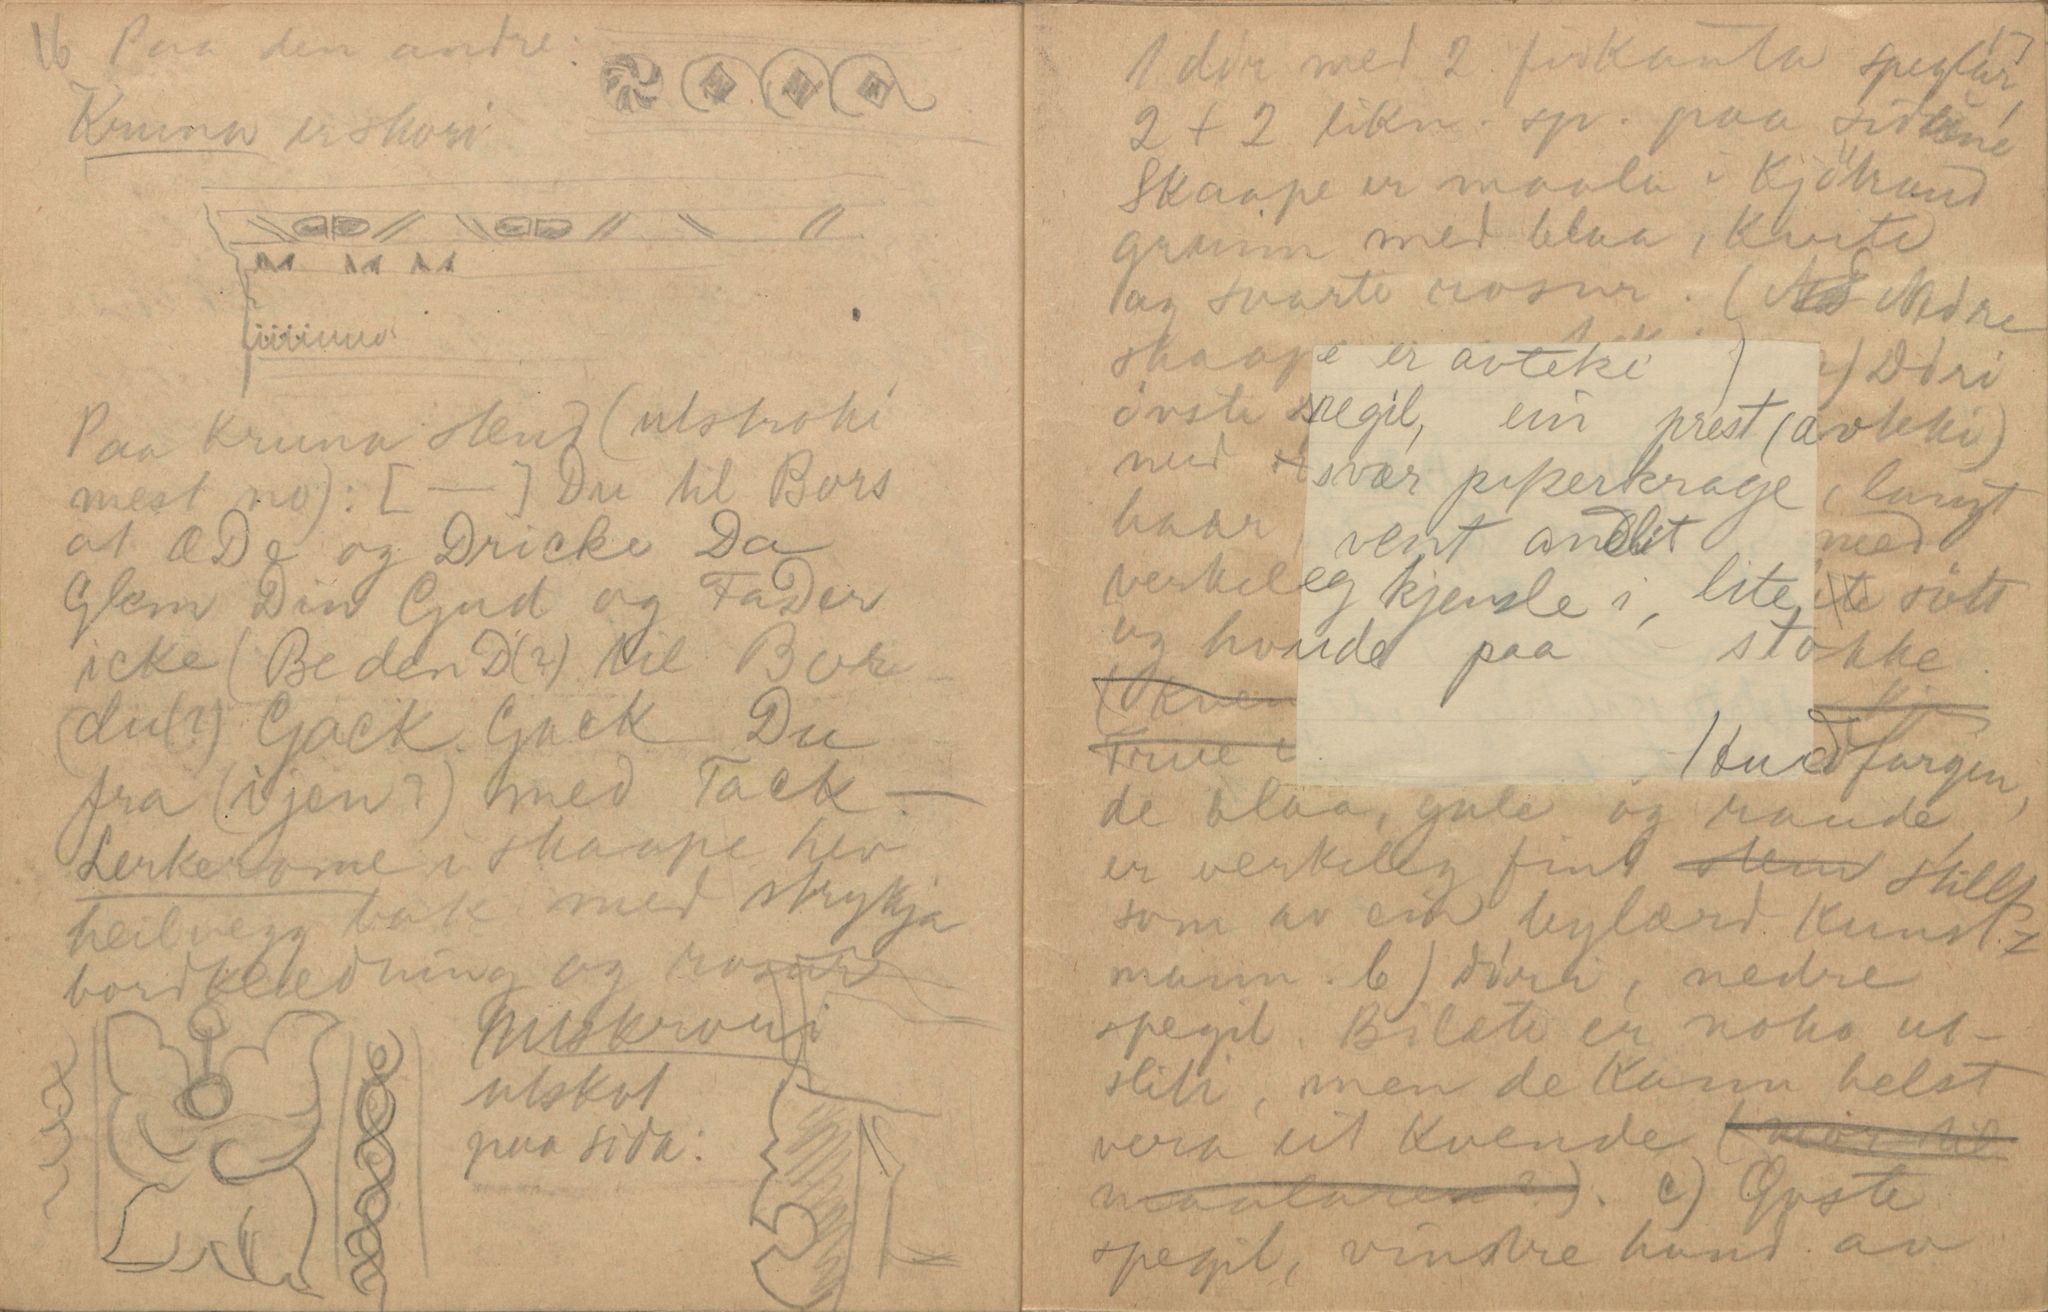 16 Paa den andre:
Kruna er skori
Paa Kruna stend (utstroki
mest no): [ — ] Du til Bors
at æDe og Dricke Da
Glem Din Gud og FaDer
icke (Be den D(?) til Bor
(du(?) Gack Gack Du
fra (ijen?) med Tack —
Lerkerome i skaape hev
heilvegg bak med strykja
bordklædning og rosur
utskot
paa sida:
1 dør med 2 firkanta speglar,
2 + 2 likn. sp. paa sidune
Skaape er maala i
grunn med blaa, kvite
og svarte rosur. ( Nedre
skaape er avteki) a) Døri
øvste spegil, ein prest (avteki)
med svær piperkrage, langt
haar, vent andlit med
verkeleg kjensle i, lite, søtt
og hovude paa stokke.
(Kven
True i
Hudfargen,
de blaa, gule og raude,
er verkeleg fint stillt
som av ein bylærd Kunst-
mann. b) døri, nedre
spegil. Bilæte er noko ut-
sliti, men de kann helst
vera eit kvende
maalaren?). c) Øvste
spegil, vinstre hand av